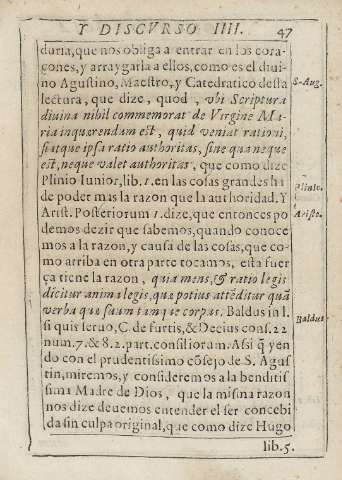 Y DISCVRSO IIII. 47
duria, que nos obliga a entrar en los cora-
çones, y arraygarla a ellos, como es el diui-
no Agustino, Maestro, y Catedratico desta
lectura, que dize, quod, vbi Scriptura
diuina nihil commemorat de Virgine Ma-
ria inquerendam est, quid veniat rationi,
fiatque ipsa ratio authoritas, sine qua neque
est, neque valet authoritas, que como dize
Plinio Iunior, lib. 1. en las cosas grandes ha
de poder mas la razon que la authoridad. Y
Arist. Posteriorum 1. dize, que entonces po
demos dezir que sabemos, quando conoce
mos a la razon, y causa de las cosas, que co-
mo arriba en otra parte tocamos, esta fuer
ça tiene la razon, quia mens, & ratio legis
dicitur anima legis, quæ potius attēditur quā
verba quæ sunt tamque corpus. Baldus in l.
si quis seruo, C. de furtis, & Decius cons. 22
num. 7. & 8. 2. part. consiliorum. Assi q̃ yen
do con el prudentissimo cōsejo de S. Agus
tin, miremos, y consideremos a la benditis
sima Madre de Dios, que la misma razon
nos dize deuemos entender el ser concebi
da sin culpa original, que como dize Hugo
lib. 5.
S. Aug.
Plinio.
Aristo.
Baldus